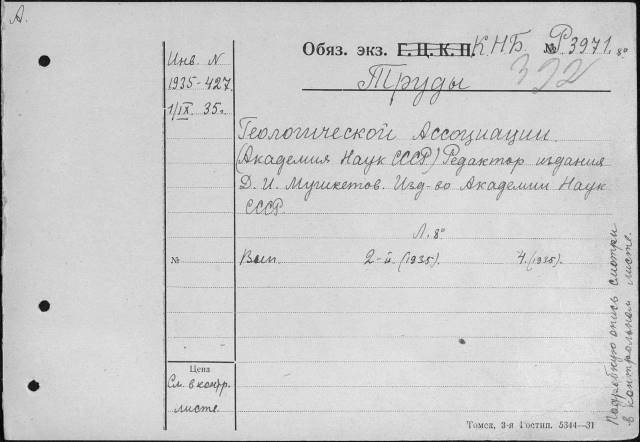 А.
Обяз. экз. Г. Ц. К. П. КНБ № Р3971. 8°
392
Инв. N
1935-427
1/IX 35г.
Труды
Геологической Ассоциации.
(Академия Наук СССР) Редактор издания
Д. И. Мушкетов. Изд-во Академии Наук
СССР.
Л. 8°
№ Вып. 2-й. (1935). 4. (1935).
Цена
См. в контр.
листе.
Подробную опись смотри
в контрольном листе.
Томск, 3-я Гостип. 5344—31